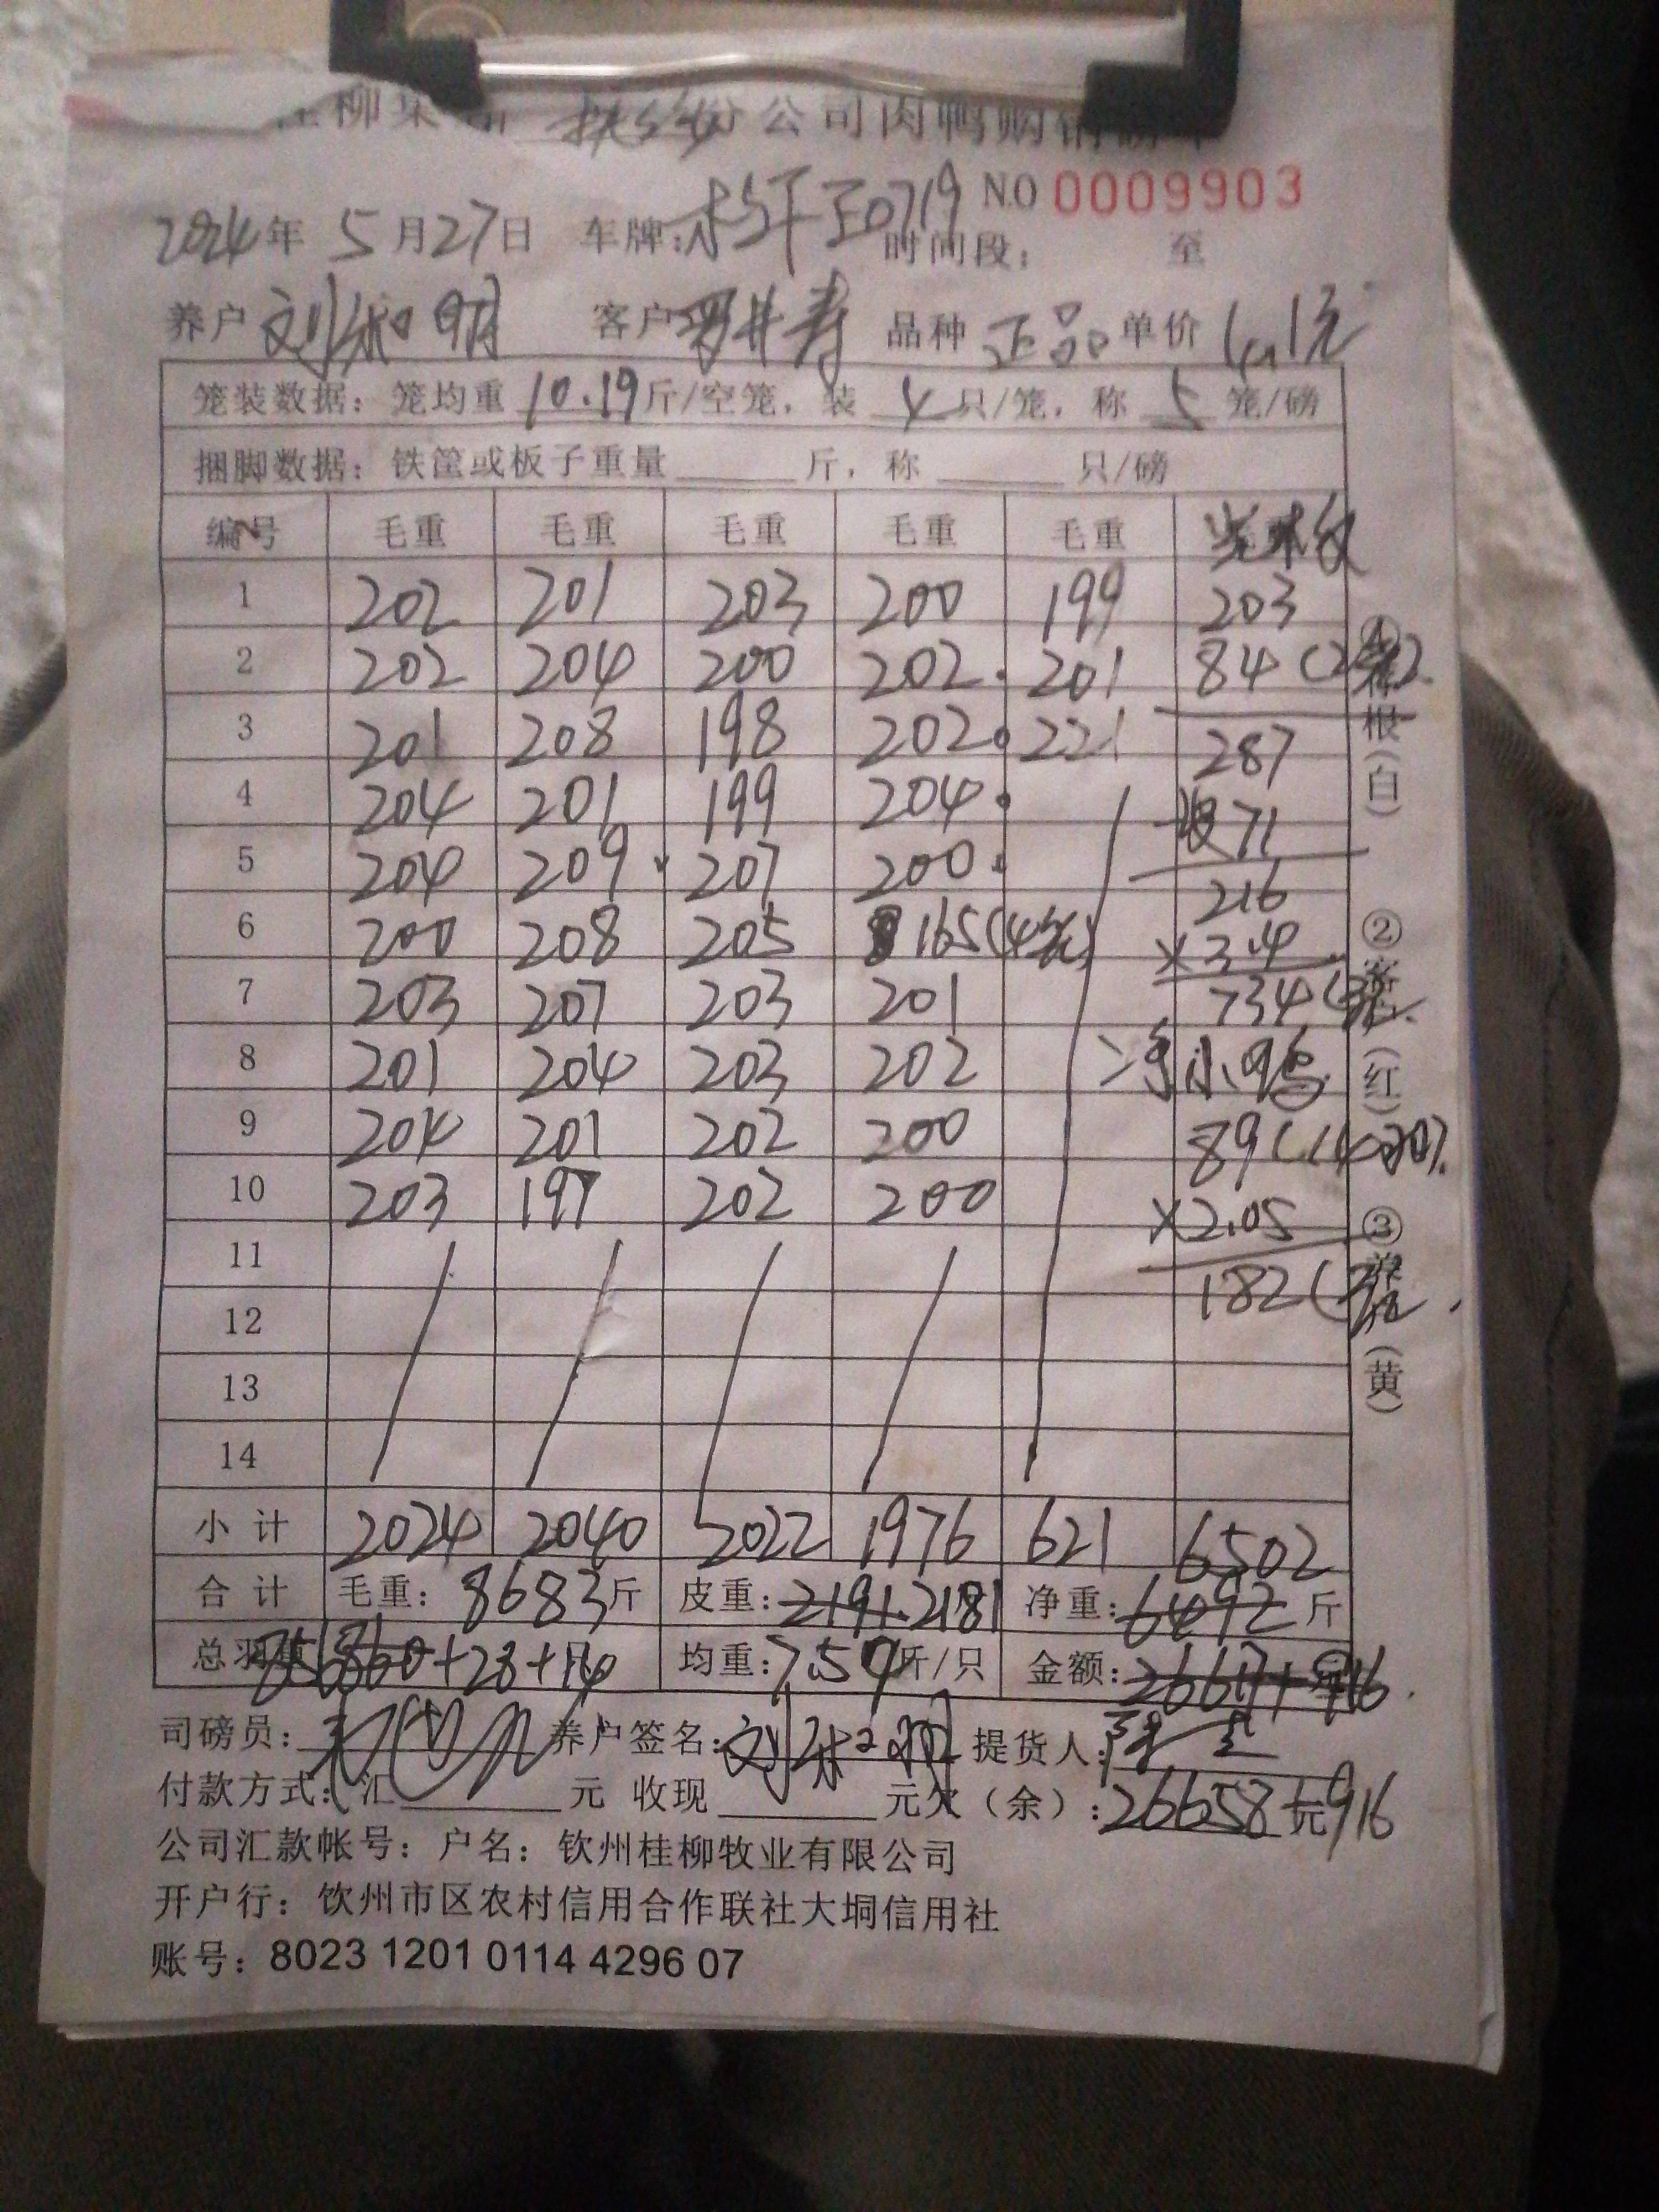 公司肉鸭购销磅单
NO 0009903
2024年 5月27日 车牌: 0719 时间段: 至
养户 刘 明 客户 罗 寿 品种 正品 单价 4.1元
笼装数据: 笼均重 10.19 斤/空笼, 装 4 只/笼, 称 5 笼/磅
捆脚数据: 铁筐或板子重量 斤, 称 只/磅
编号 毛重 毛重 毛重 毛重 毛重
1 202 201 203 200 199 203
2 202 204 200 202 201 84
3 201 208 198 202 221 287
4 204 201 199 204 71
5 204 209 207 200 216
6 200 208 205 165(4笼) ×3.4
7 203 207 203 201 734
8 201 204 203 202 小鸭
9 204 201 202 200 89(14只)
10 203 197 202 200 ×2.05
11 182
12
13
14
小计 2024 2040 2022 1976 621 6502
合计 毛重: 8683斤 皮重: 2191.2181 净重: 6492 斤
总羽 860+28+14 均重: 7.54斤/只 金额: 26617+916
司磅员: 养户签名: 刘 明 提货人:
付款方式: 汇 元 收现 元欠(余): 26658+元916
公司汇款帐号: 户名: 钦州桂柳牧业有限公司
开户行: 钦州市区农村信用合作联社大垌信用社
账号: 8023 1201 0114 4296 07
①存根(白)
②客户(红)
③养户(黄)